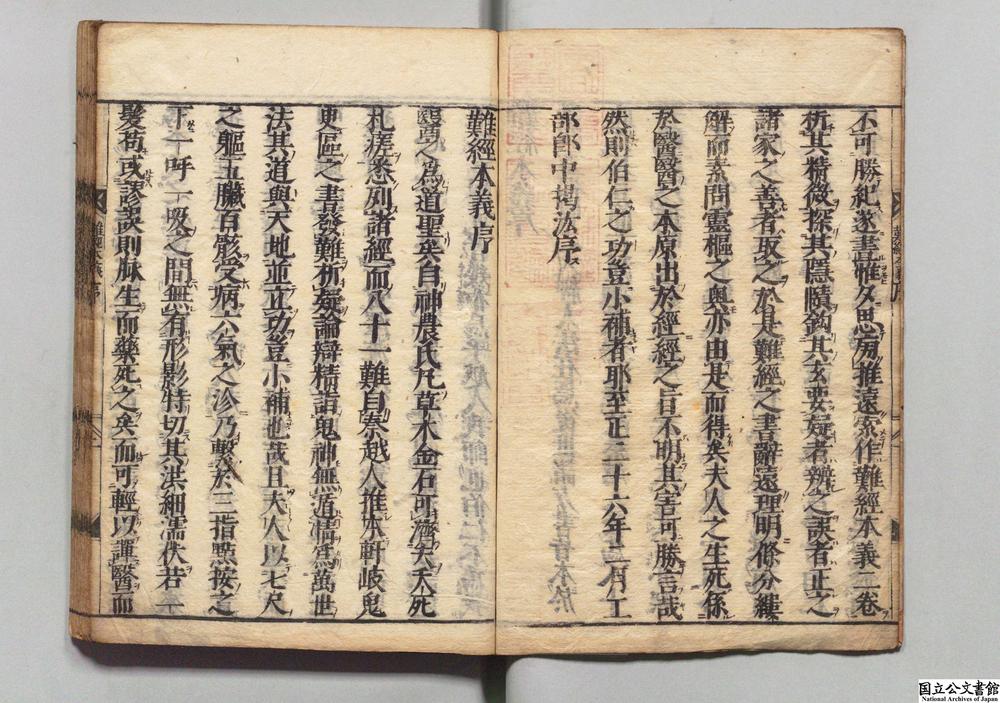 不可勝紀遂晝惟夕思旁推遠索作難經本義二卷
析其精微探其隱賾鈎其玄要疑者辨之誤者正之
諸家之善者取之於是難經之書辭遠理明條分縷
解而素問靈樞之奧亦由是而得矣夫人之生死係
於醫醫之本原出於經經之旨不明其害可勝言哉
然則伯仁之功豈小補者耶至正二十六年二月工
部郎中揭汯序
難經本義序
醫之為道聖矣自神農氏凡草木金石可濟夫夭死
札瘥悉列諸經而八十一難自秦越人推本軒岐鬼
臾區之書發難析疑論辯精詣鬼神無遁情為萬世
法其道與天地並立功豈小補也哉且夫人以七尺
之軀五臟百骸受病六氣之沴乃繫於三指點按之
下一呼一吸之間無有形影特切其洪細濡伏若一
髮苟或謬誤則脉生而藥死之矣而可輕以談醫而
難經本義序
國立公文書館
National Archives of Japan